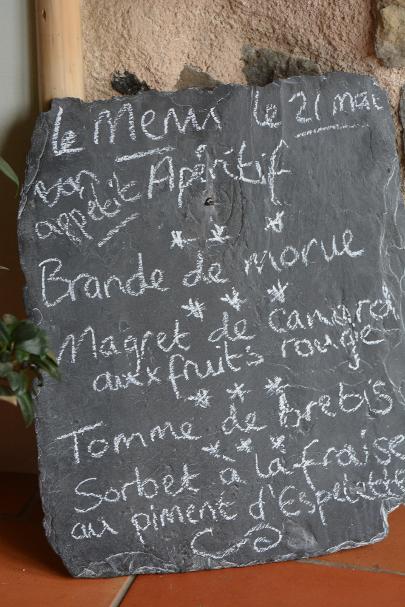 Le Menu le 21 mai
Bon
appétit
Apéritif
Brande de morue
Magret de canard
aux fruits rouge
Tomme de brebis
Sorbet à la fraise
au piment d'Espelette